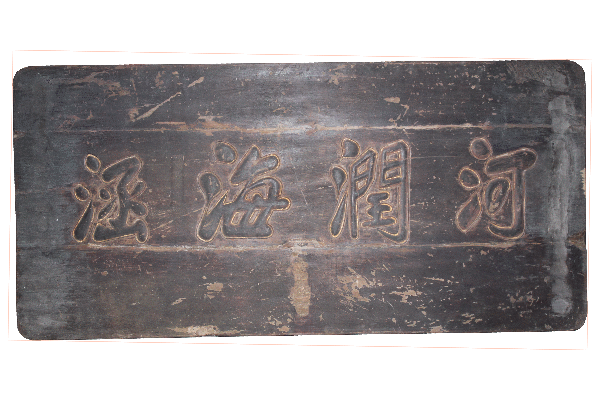 河潤海涵